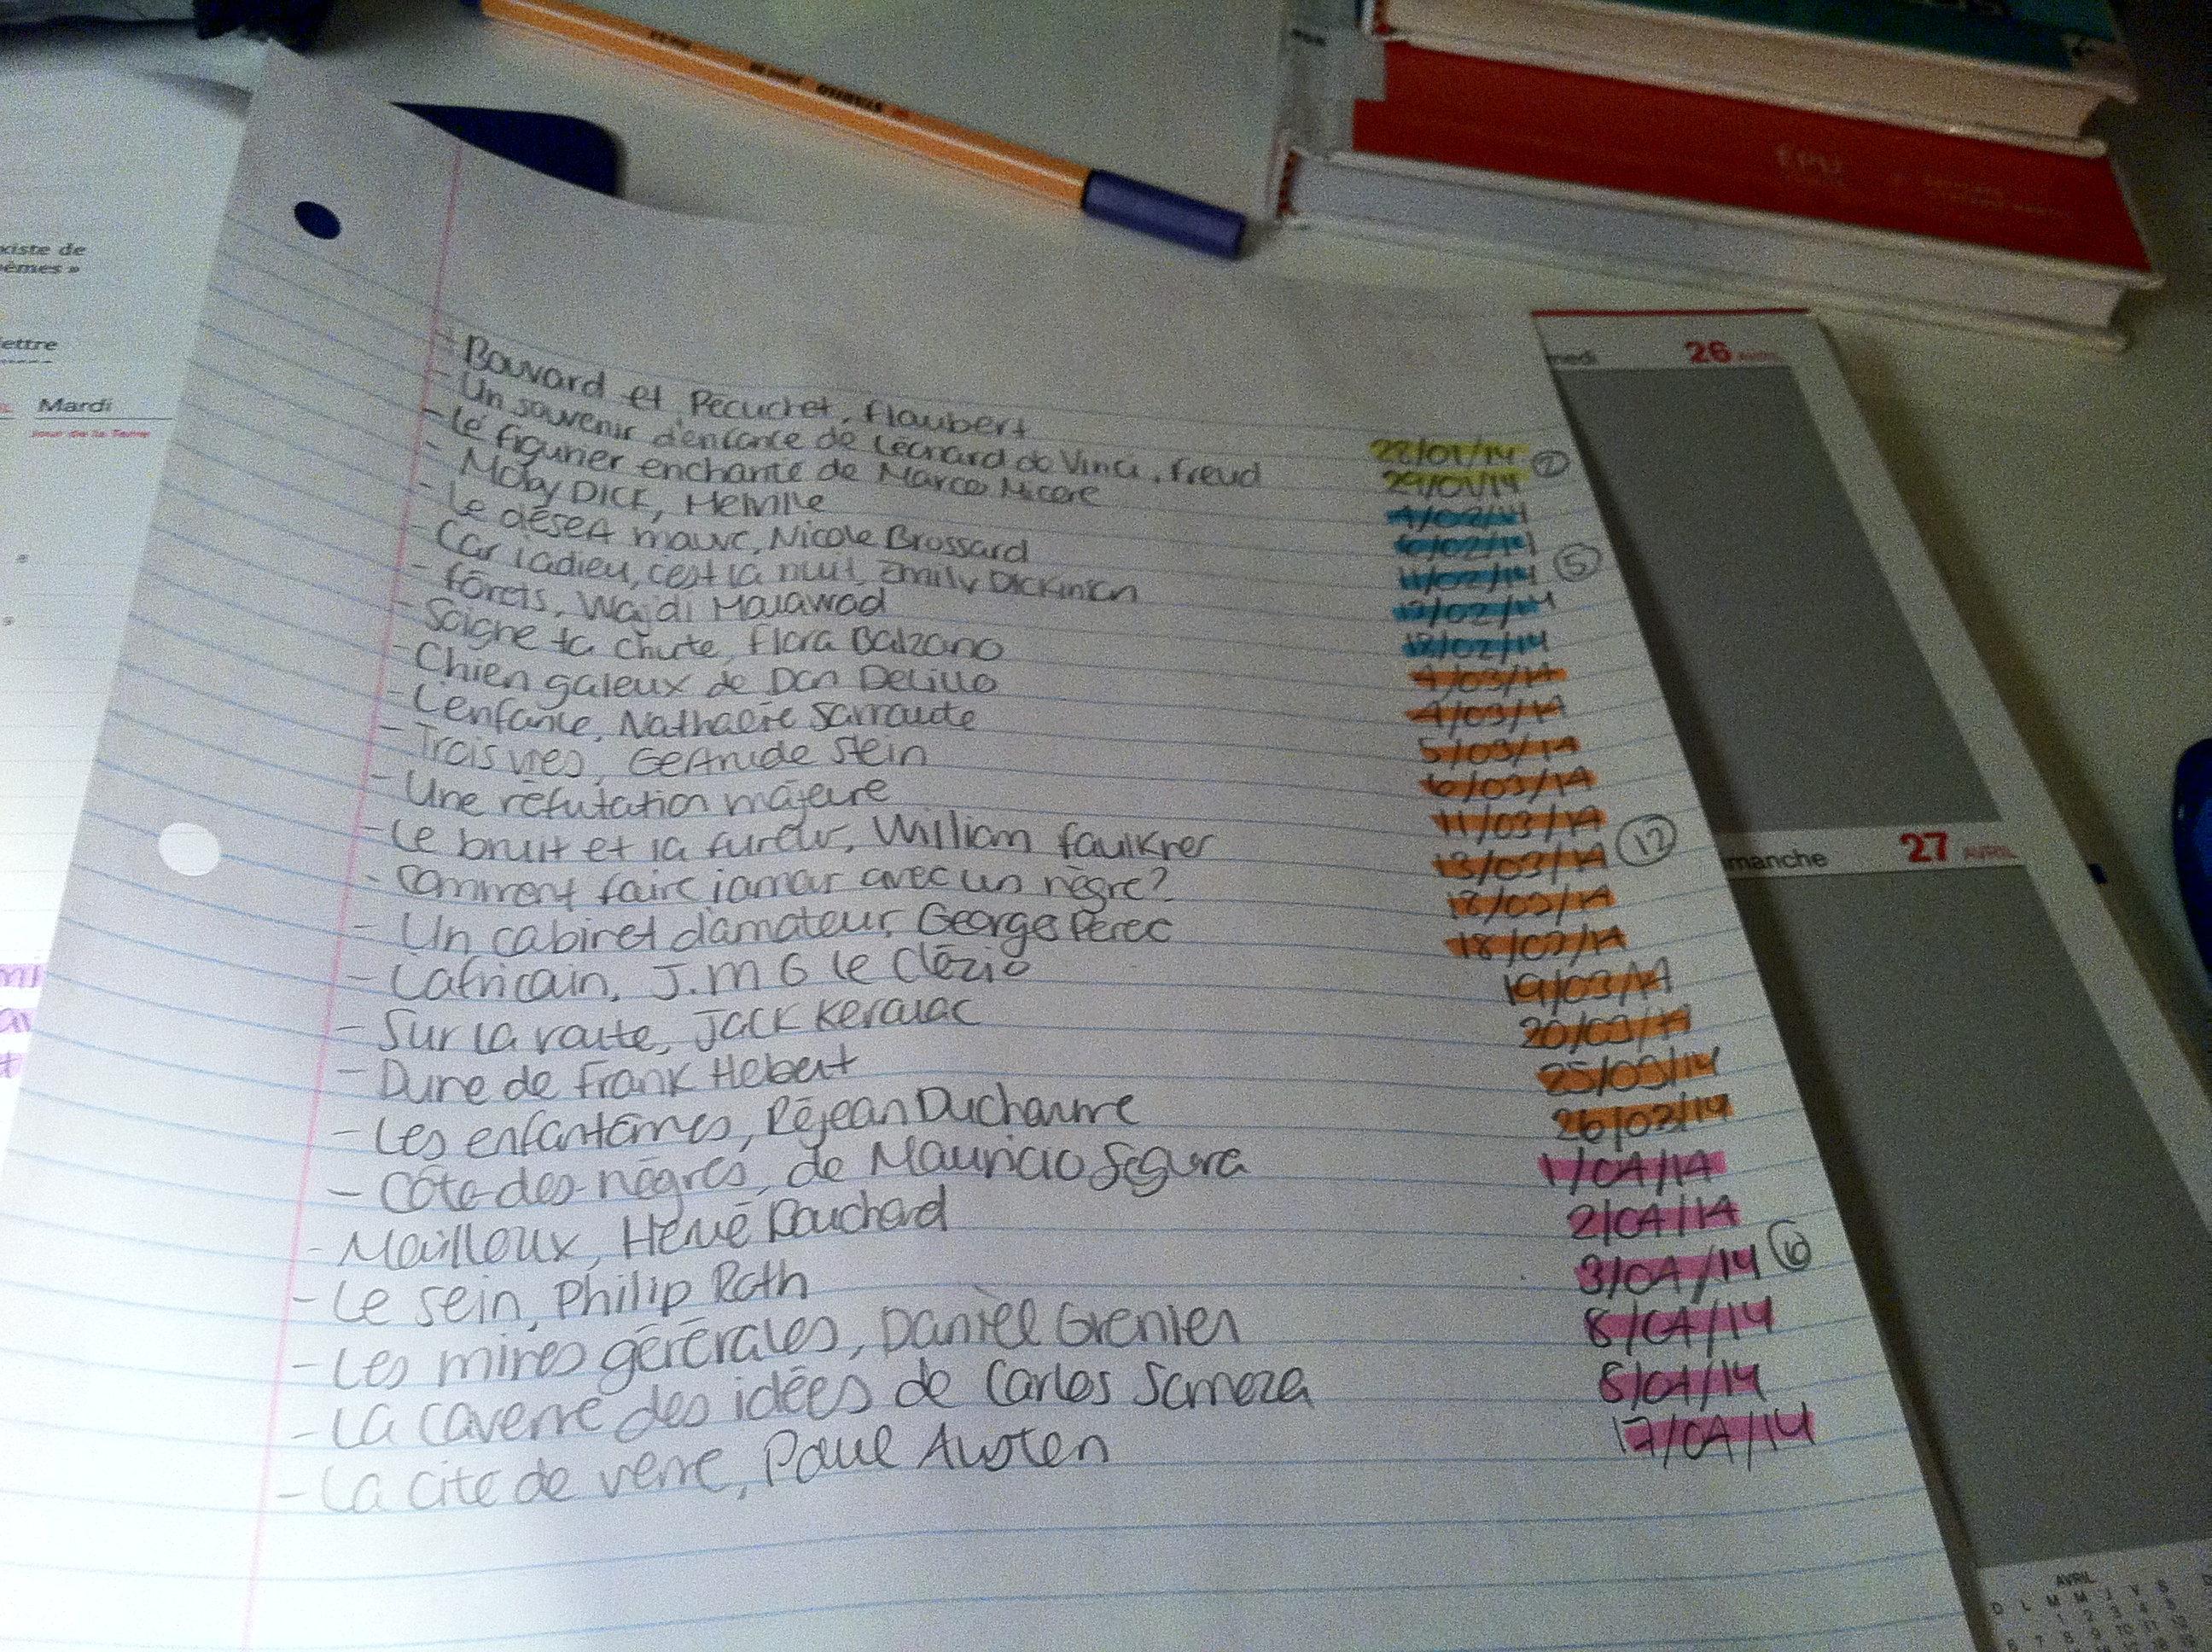 xiste de
èmes »
ettre
Mardi
Jour de la Terre
- Bouvard et Pécuchet, Flaubert
22/01/14 ②
- Un souvenir d'enfance de Léonard de Vinci, Freud
29/01/14
- Le figuier enchanté de Marco Micone
4/02/14
- Moby Dick, Melville
6/02/14
- Le désert mauve, Nicole Brossard
11/02/14 ⑤
- Car l'adieu, c'est la nuit, Emily Dickinson
13/02/14
- Forêts, Wajdi Mouawad
18/02/14
- Soigne ta chute, Flora Balzano
4/03/14
- Chien galeux de Don Delillo
4/03/14
- L'enfance, Nathalie Sarraute
5/03/14
- Trois vies, Gertrude Stein
6/03/14
- Une réfutation majeure
11/03/14
- Le bruit et la fureur, William Faulkner
13/03/14 ⑫
- Comment faire lamour avec un nègre?
18/03/14
- Un cabinet d'amateur, George Perec
18/03/14
- L'africain, J.M G le Clézio
19/03/14
- Sur la route, Jack Kerouac
20/03/14
- Dune de Frank Hebert
25/03/14
- Les enfantômes, Réjean Ducharme
26/03/14
- Côte-des-nègres, de Mauricio Segura
1/04/14
- Mailloux, Hervé Bouchard
2/04/14
- Le sein, Philip Roth
3/04/14
- Les mines générales, Daniel Grenier
8/04/14
- La caverne des idées de Carlos Somoza
8/04/14
- La cité de verre, Paul Auster
17/04/14
medi 26 AVRIL
manche 27 AVRIL
AVRIL
D L M M J V S